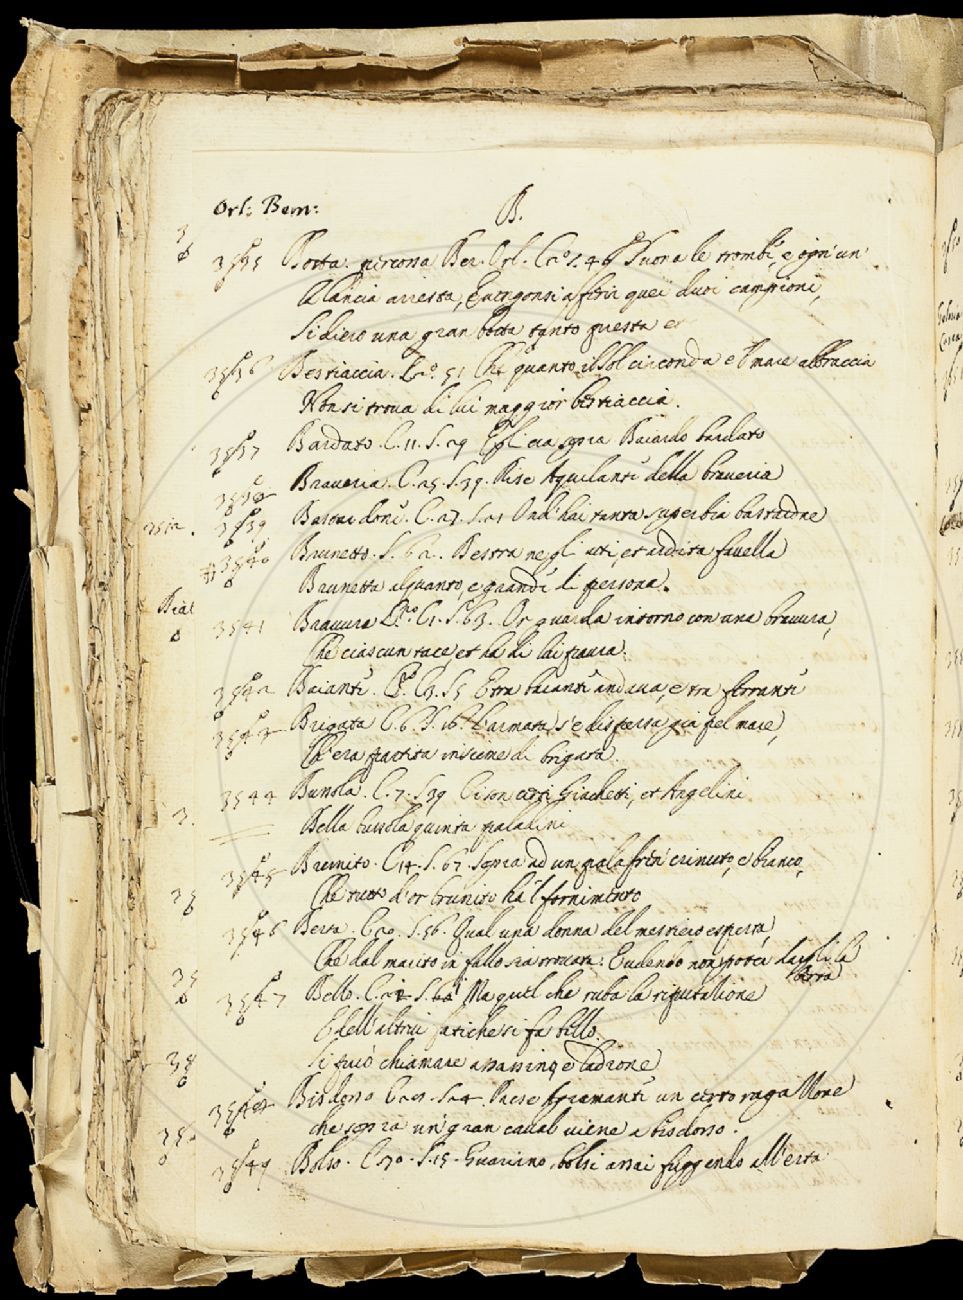 Orl: Bern:
B.
3535 Botta. percossa Ber. Orl. C. S. 46 Suona le trombe, e ogn' un
La lancia arresta, E vengonsi a ferir quei duoi campioni,
Si diero una gran botta tanto questa et
3536 Bestiaccia. 51 Che quanto il Sol circonda e 'l mare abbraccia
Non si trova di lui maggior bestiaccia.
3537 Bardato. C. 11. S. 29 Egli era sopra Baiardo bardato
3538 Braveria. C. 25. S. 39. Rise Aquilante della braveria
3539 Bastardone. C. 27. S. 21 Ond' hai tanta superbia bastardone
3540 Brunetto. S. 62. Destra negl' atti, et ardita favella
Brunetta alquanto, e grande di persona.
3541 Bravura C. 1. S. 63. Or guarda intorno con una bravura,
Che ciascun tace, et ha di lui paura.
3542 Baiante. C. 3. S. 5 E tra baianti andava, e tra ferranti
3543 Brigata C. 6. S. 16. L'armata s'è dispersa già pel mare,
Ch'era partita insieme di brigata.
3544 Bussola. C. 7. S. 39 Ci son certi Giachetti, et Angelini
Della bussola quinta paladini
3545 Brunito. C. 14. S. 67. Sopra ad un palafren crinuto, e bianco,
Che tutto d'or brunito ha 'l fornimento
3546 Berta. C. 20. S. 56. Qual una donna del mestiero esperta,
Che dal marito in fallo sia trovata. Evedendo non poter dargli la
berta
3547 Bello. C. 24. S. Ma quel che ruba la riputatione
E dell'altrui fatiche si fa bello.
Si può chiamare assassino, e ladrone
3548 Bisdosso S. 24. Prese Agramante un certo ragazzone
che sopra un gran caval viene a bisdosso.
3549 Bolso. C. 30. S. 15. Guariano, bolsi assai fuggendo all'erta